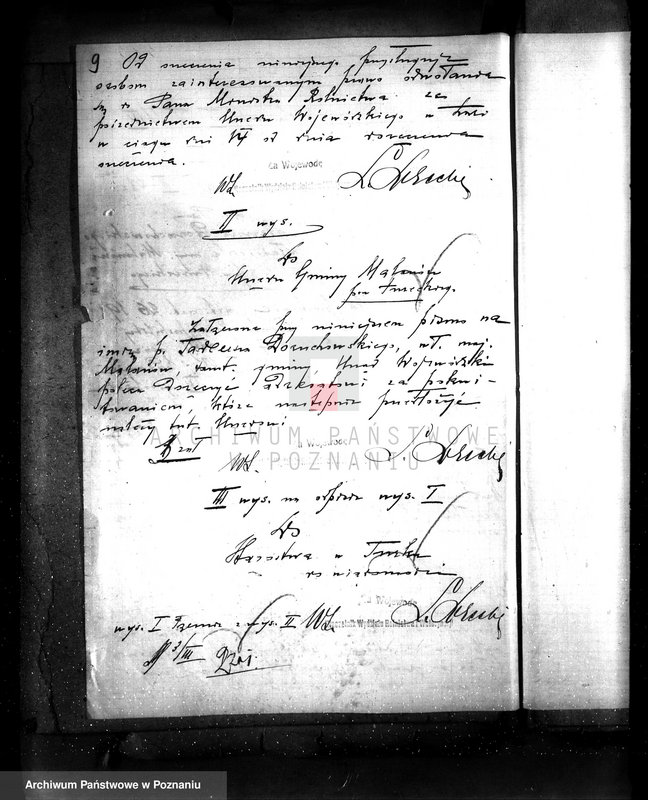 9 Od orzeczenia niniejszego przysługuje
osobom zainteresowanym prawo odwołania
się do Pana Ministra Rolnictwa za
pośrednictwem Urzędu Wojewódzkiego w Łodzi
w ciągu dni 14 od dnia doręczenia
orzeczenia.
Za Wojewodę
WŁ.
II wys.
Do
Urzędu Gminy Malanów
pow. tureckiego.
Załączone przy niniejszem pismo na
imię p. Tadeusza Doruchowskiego, wł. maj.
Malanów, tamt. gminy, Urząd Wojewódzki
poleca doręczyć adresatowi za pokwi-
towaniem, które następnie przedłożyć
należy tut. Urzędowi
1 zał.
Za Wojewodę
WŁ.
ARCHIWUM PAŃSTWOWE
W POZNANIU
III wys. na odpisie wys. I
Do
Starostwa w Turku
do wiadomości
Za Wojewodę
wys. I razem z wys. II WŁ.
3/III
Archiwum Państwowe w Poznaniu